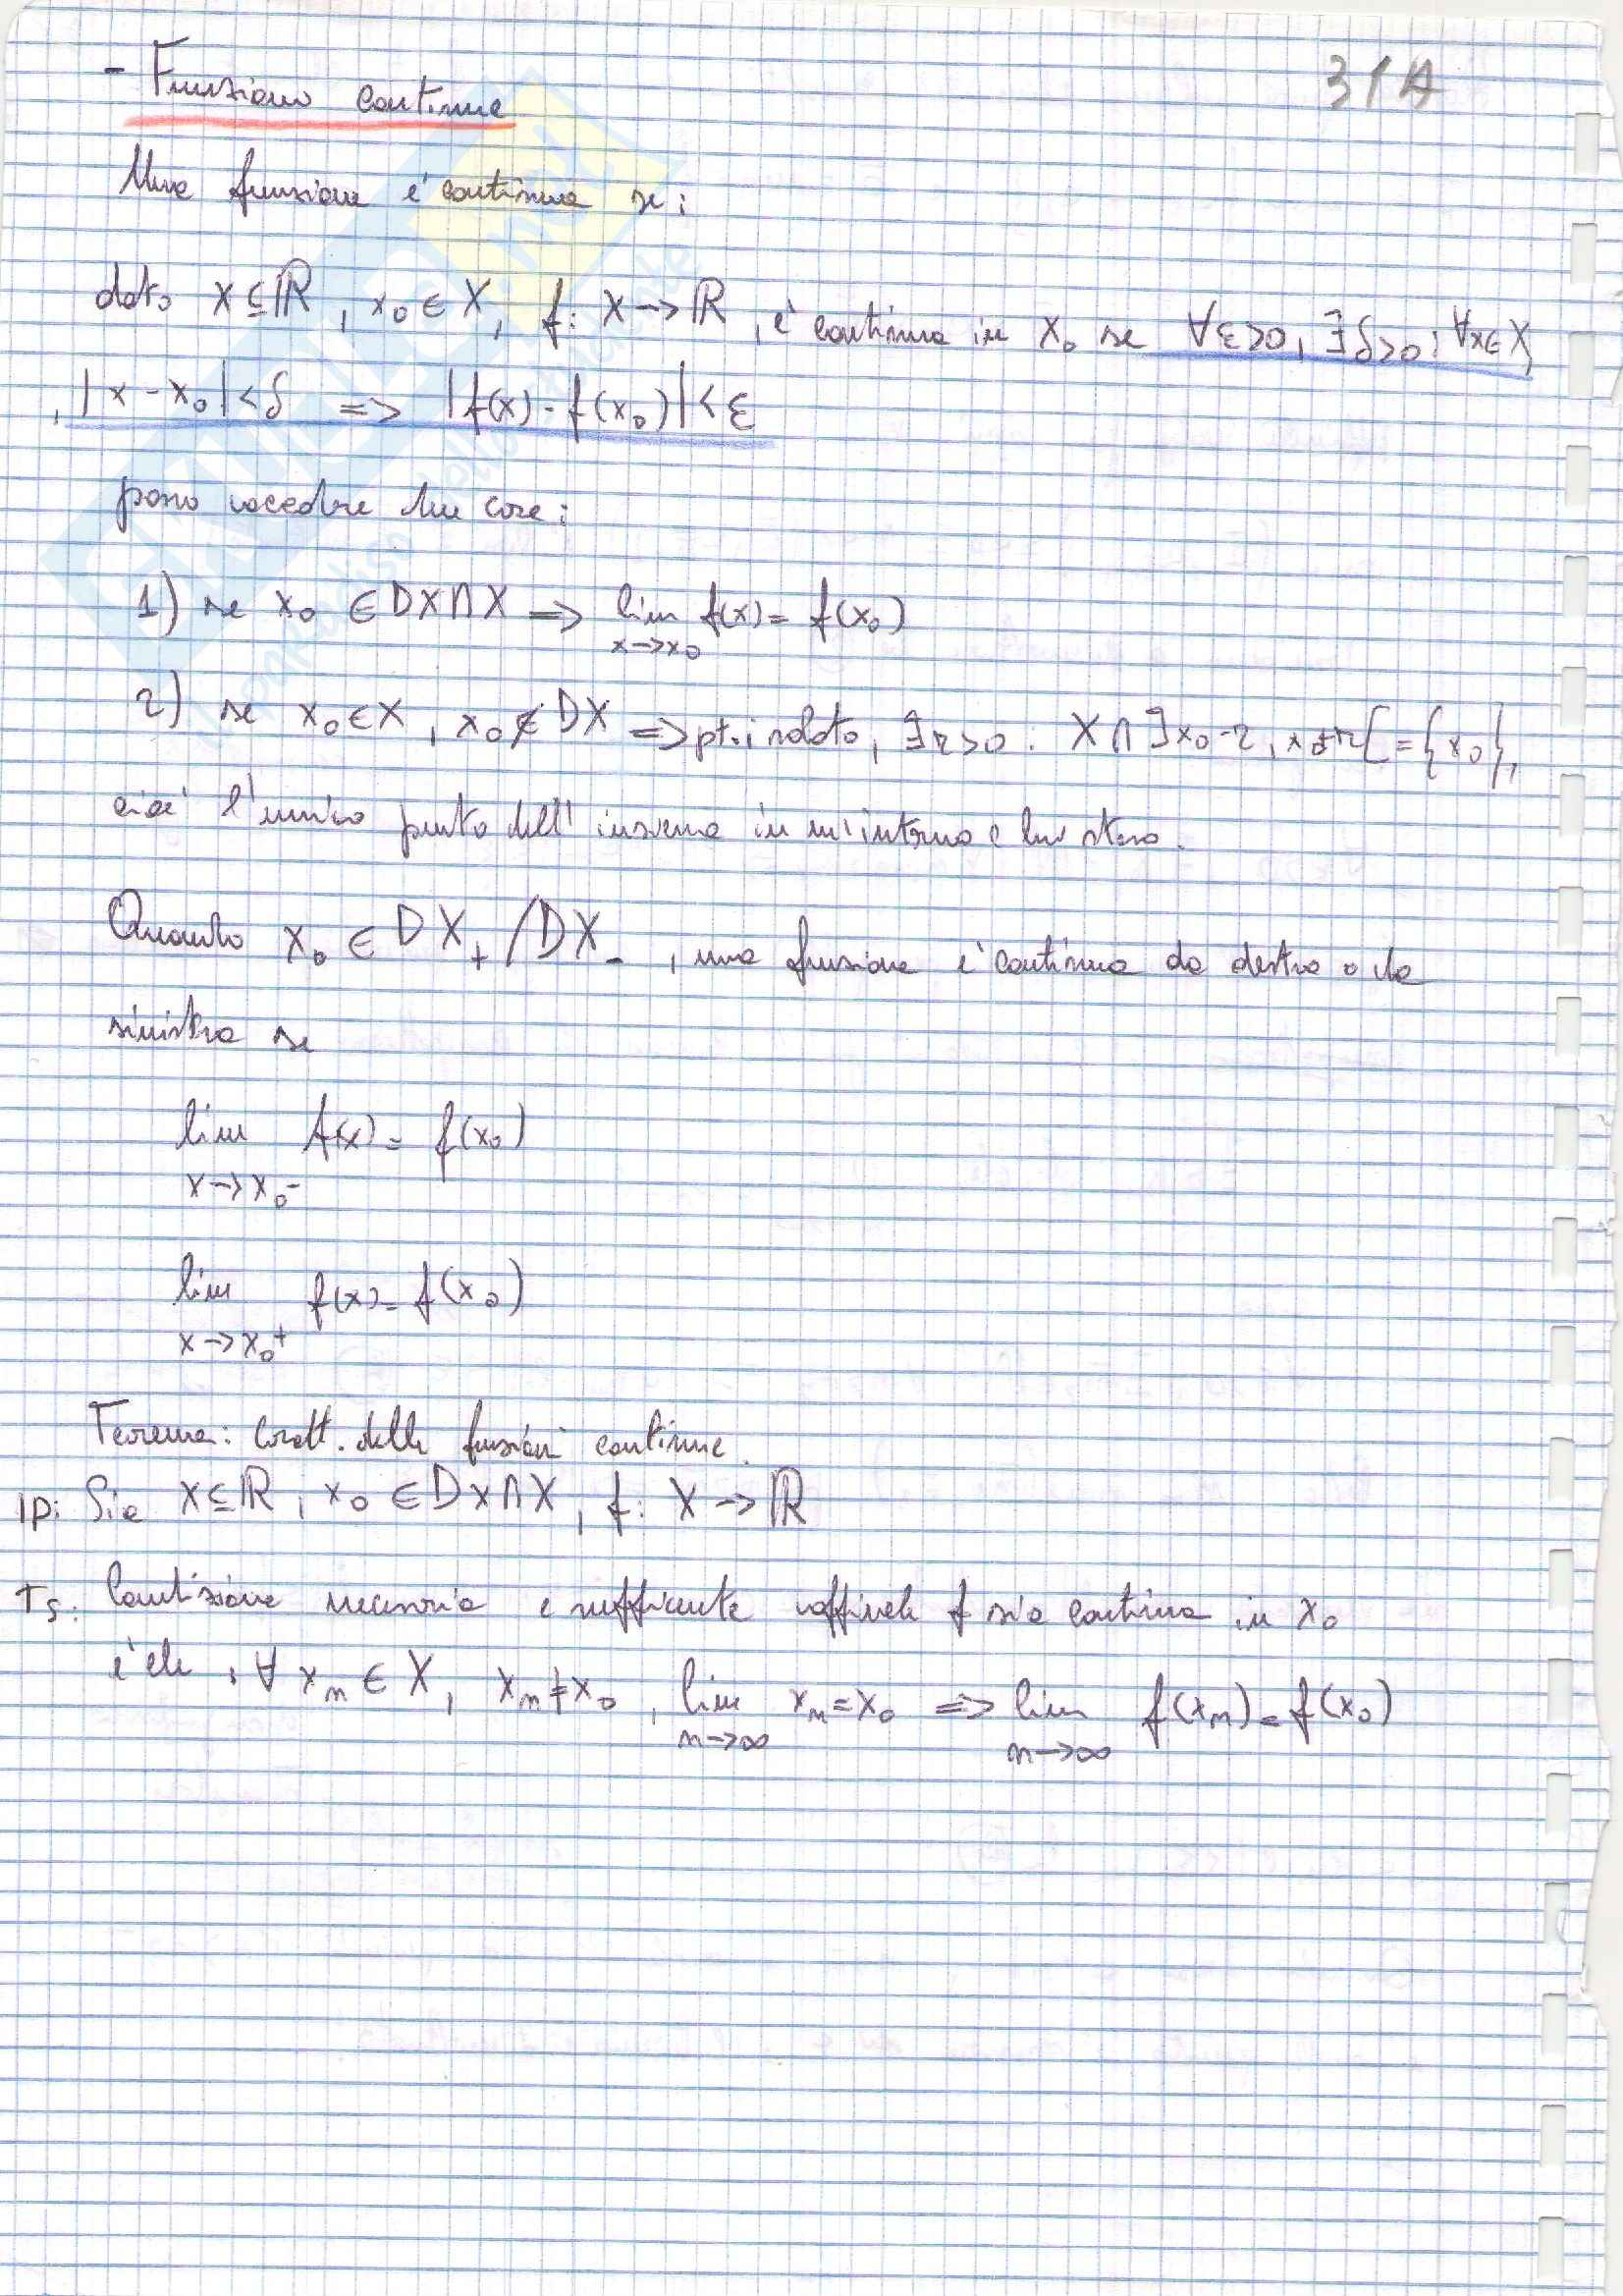 31A
- Funzione continue
Una funzione è continua se:
dato X ⊆ ℝ, x₀ ∈ X, f: X → ℝ, è continua in x₀ se ∀ε>0, ∃δ>0: ∀x∈X
, |x - x₀| < δ => |f(x) - f(x₀)| < ε
posso accadere due cose:
1) se x₀ ∈ DX∩X => lim f(x) = f(x₀)
x→x₀
2) se x₀ ∈ X, x₀ ∉ DX => pt. isolato, ∃r>0. X ∩ ]x₀-r, x₀+r[ = {x₀},
cioè l'unico punto dell'insieme in un'intorno è lui stesso.
Quando x₀ ∈ DX₊/DX₋, una funzione è continua da destra o da
sinistra se
lim f(x) = f(x₀)
x→x₀⁻
lim f(x) = f(x₀)
x→x₀⁺
Teorema: caratt. delle funzioni continue.
IP: Sia X ⊆ ℝ, x₀ ∈ DX∩X, f: X → ℝ
Ts: Condizione necessaria e sufficiente affinché f sia continua in x₀
è che, ∀ xₙ ∈ X, xₙ ≠ x₀, lim xₙ = x₀ => lim f(xₙ) = f(x₀)
n→∞ n→∞